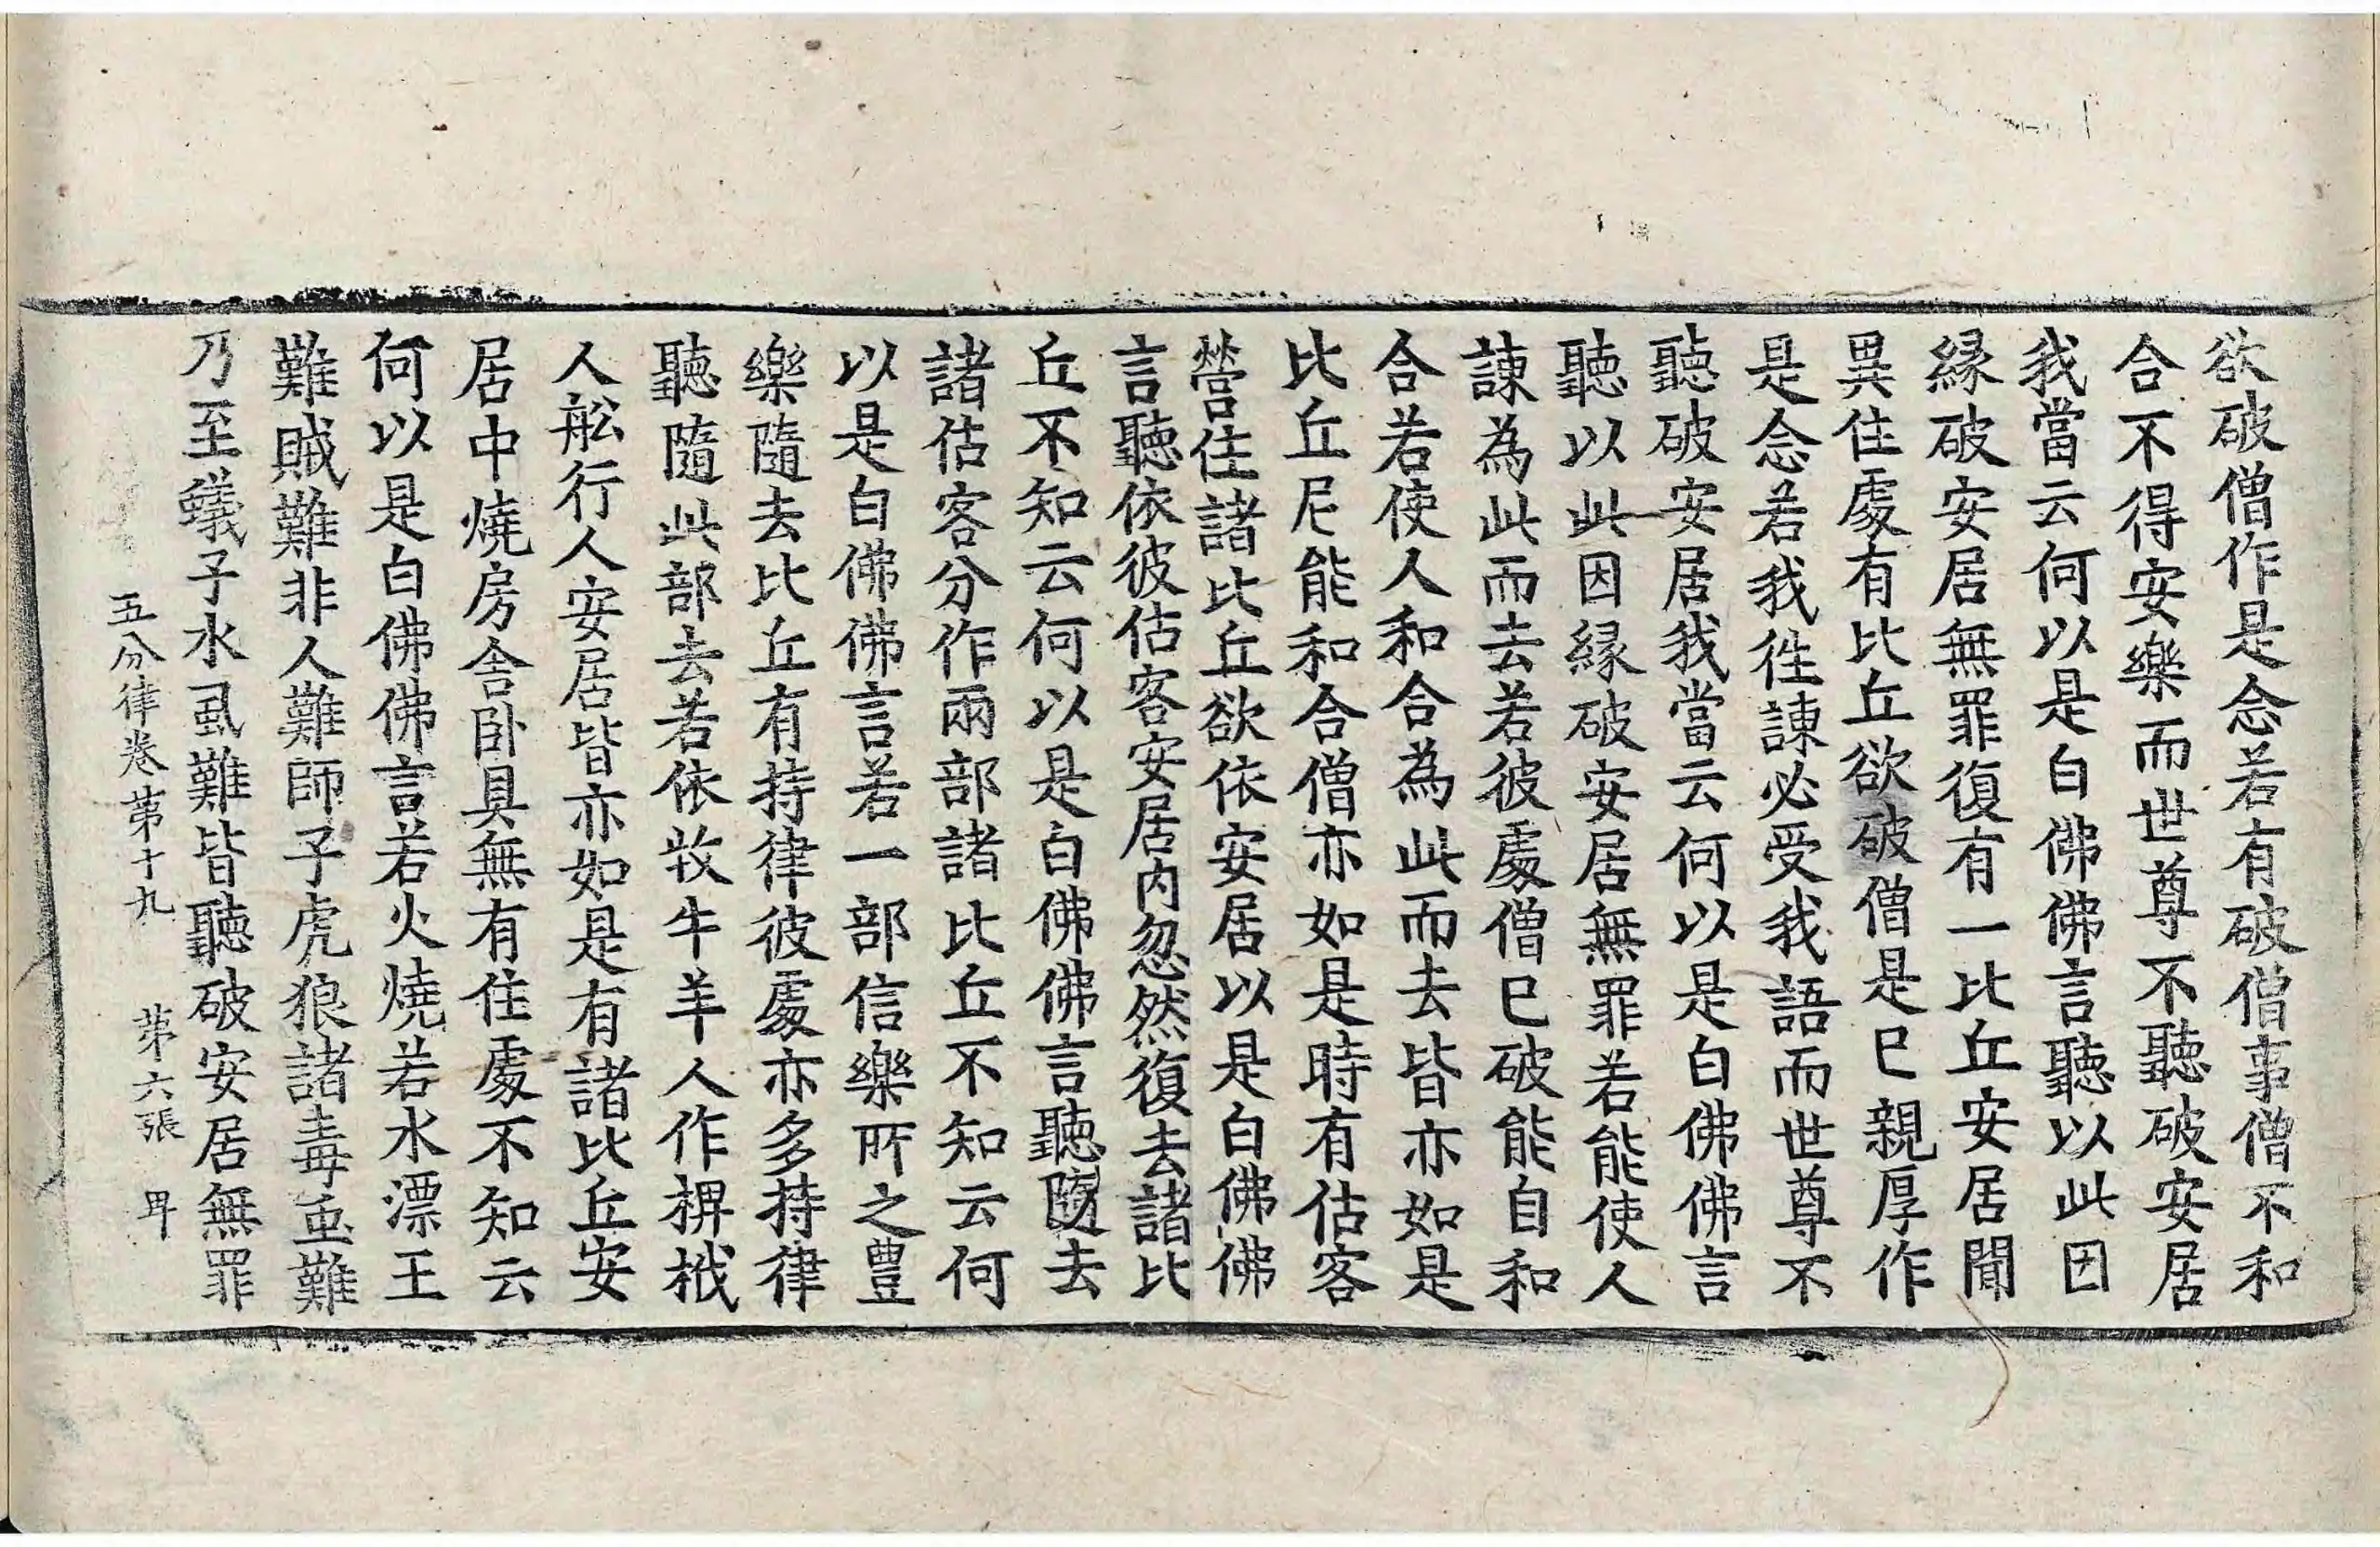 欲破僧作是念若有破僧事僧不和
合不得安樂而世尊不聽破安居
我當云何以是白佛佛言聽以此因
緣破安居無罪復有一比丘安居聞
異住處有比丘欲破僧是已親厚作
是念若我徃諫必受我語而世尊不
聽破安居我當云何以是白佛佛言
聽以此因緣破安居無罪若能使人
諫為此而去若彼處僧已破能自和
合若使人和合為此而去皆亦如是
比丘尼能和合僧亦如是時有估客
營住諸比丘欲依安居以是白佛佛
言聽依彼估客安居內忽然復去諸比
丘不知云何以是白佛佛言聽隨去
諸估客分作兩部諸比丘不知云何
以是白佛佛言若一部信樂所之豊
樂隨去比丘有持律彼處亦多持律
聽隨此部去若依牧牛羊人作椑栰
人舩行人安居皆亦如是有諸比丘安
居中燒房舍卧具無有住處不知云
何以是白佛佛言若火燒若水漂王
難賊難非人難師子虎狼諸毒䖝難
乃至蟻子水虱難皆聽破安居無罪
五分律卷第十九 第六張